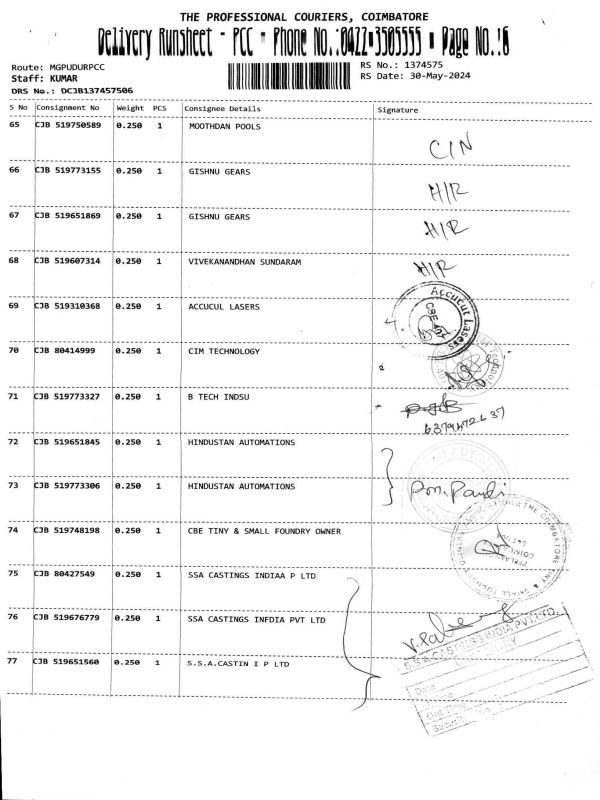 THE PROFESSIONAL COURIERS, COIMBATORE
Delivery Runsheet - PCC - Phone No.:0422-3505555 - Page No.:6
Route: MGPUDURPCC
RS No.: 1374575
Staff: KUMAR
RS Date: 30-May-2024
DRS No.: DCJB137457506
S No Consignment No Weight PCS Consignee Details Signature
65 CJB 519750589 0.250 1 MOOTHDAN POOLS
C/N
66 CJB 519773155 0.250 1 GISHNU GEARS
H/R
67 CJB 519651869 0.250 1 GISHNU GEARS
H/R
68 CJB 519607314 0.250 1 VIVEKANANDHAN SUNDARAM
H/R
69 CJB 519310368 0.250 1 ACCUCUL LASERS
Accucut Lasers
70 CJB 80414999 0.250 1 CIM TECHNOLOGY
71 CJB 519773327 0.250 1 B TECH INDSU
72 CJB 519651845 0.250 1 HINDUSTAN AUTOMATIONS
73 CJB 519773306 0.250 1 HINDUSTAN AUTOMATIONS
74 CJB 519748198 0.250 1 CBE TINY & SMALL FOUNDRY OWNER
THE COIMBATORE TINY & SMALL FOUNDRY OWNERS
75 CJB 80427549 0.250 1 SSA CASTINGS INDIAA P LTD
76 CJB 519676779 0.250 1 SSA CASTINGS INFDIA PVT LTD
S.S.A CASTINGS INDIA PVT.LTD.
77 CJB 519651560 0.250 1 S.S.A.CASTIN I P LTD
Date